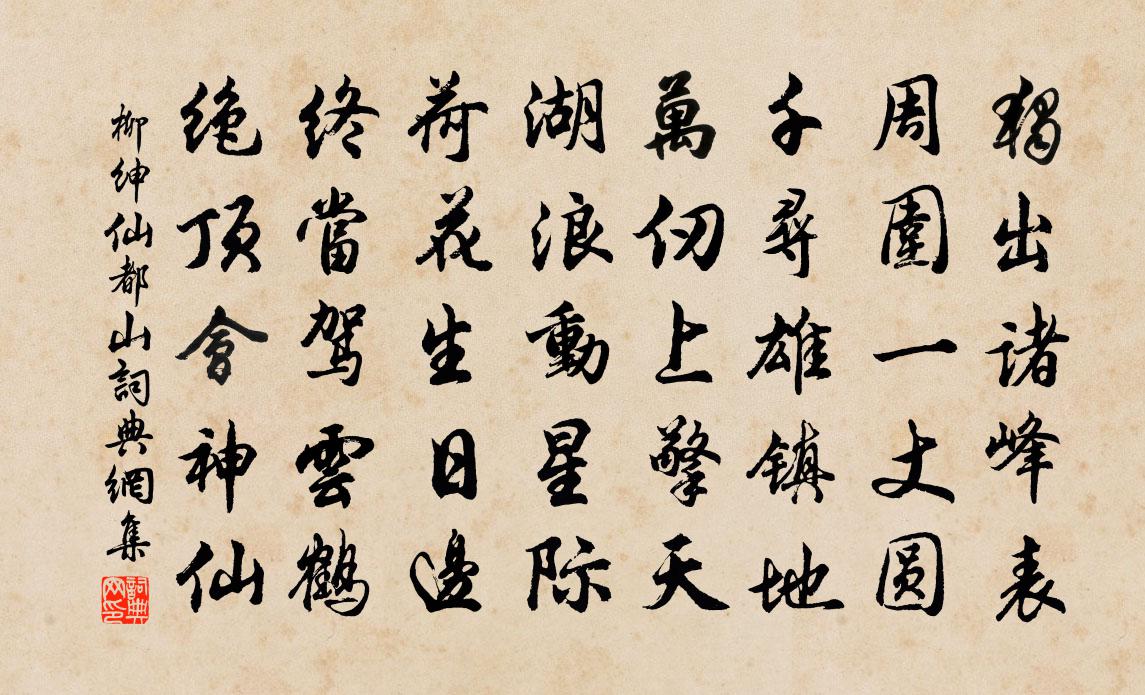 獨出諸峰表
周圍一丈圓
千尋雄鎮地
萬仞上擎天
湖浪動星际
荷花生日邊
終當駕雲鶴
绝頂會神仙
柳紳仙都山詞典網集
詞典网印